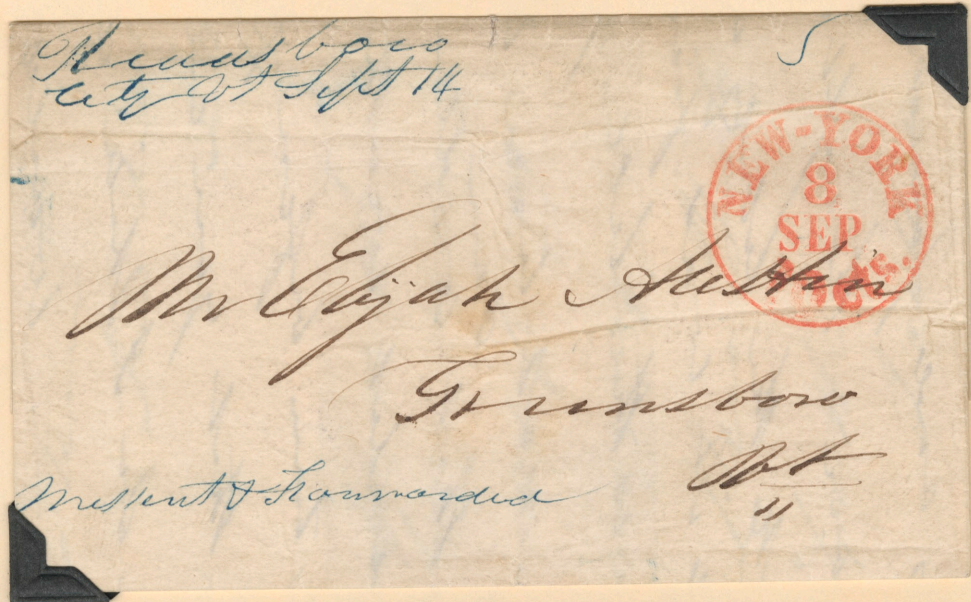 Greensboro
City Vt Sept 14
5
NEW-YORK
8
SEP
cts.
Mr Elijah Austin
Greensboro
Vt
"
Missent & Forwarded